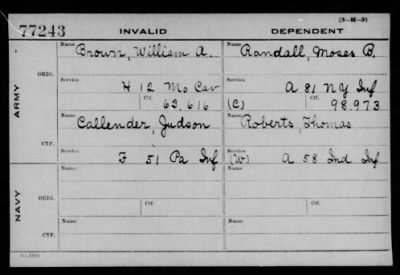 (3-H-8)
77243 INVALID DEPENDENT
ARMY
ORIG.
Name Brown, William A. Name Randall, Moses B.
Service H 12 Mo Cav Service A 81 N.Y. Inf
Ctf. 62,616 (C) Ctf. 98.973
CTF.
Name Callender, Judson Name Roberts, Thomas
Service F 51 Pa Inf Service (W) A 58 Ind Inf
NAVY
ORIG.
Name Ctf. Name Ctf.
CTF.
Name Name